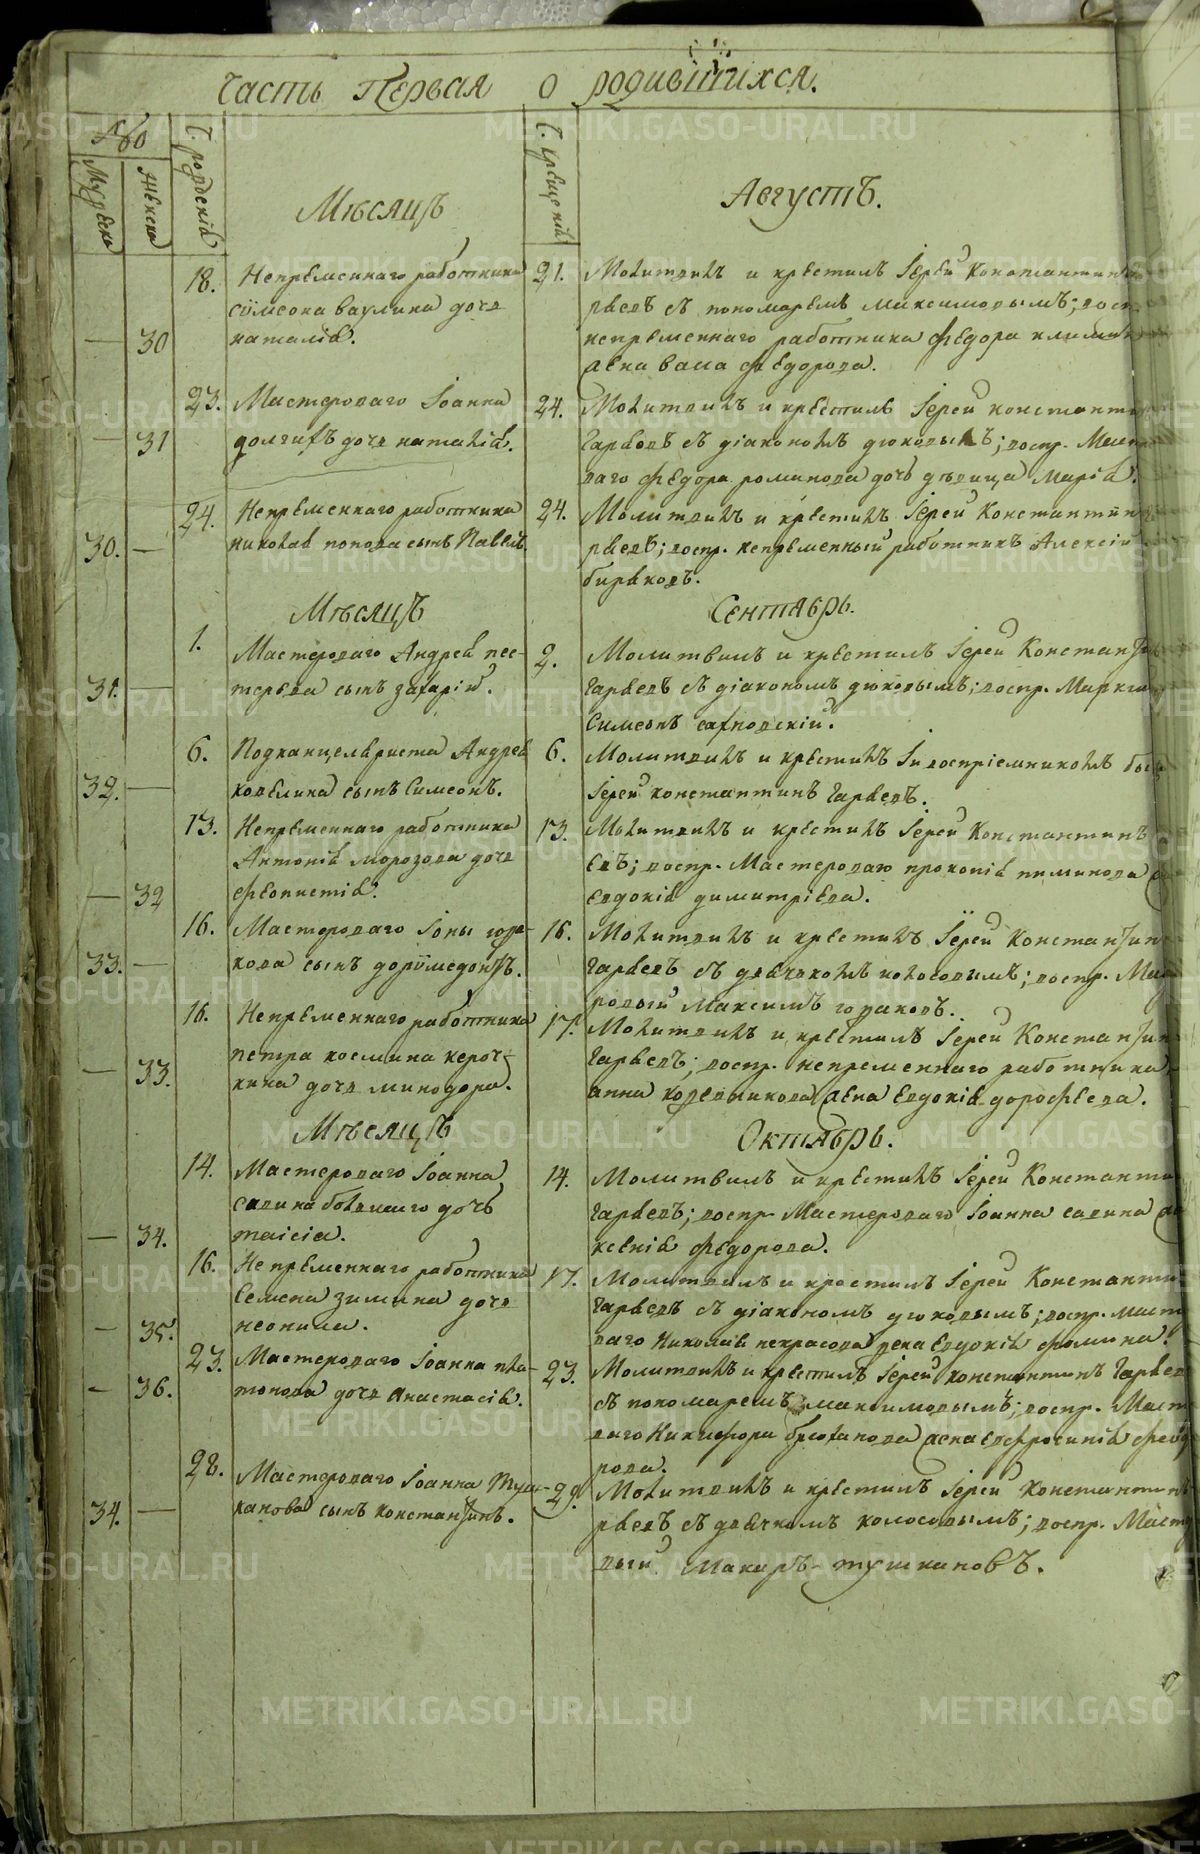 Часть Первая о родившихся.
№
Мужеска
Женска
Ч. рождения
Ч. крещения
Мѣсяцъ
Августъ.
18.
Непременнаго работника
симеона ваулина дочь
30
наталия.
21.
Молитвилъ и крестилъ Iерей Константинъ
рвевъ съ пономаремъ максимовымъ; восп.
непременнаго работника Федора
жена васа Федорова.
23.
Мастероваго Iоанна
31
долгихъ дочь наталия.
24.
Молитвилъ и крестилъ Iерей константинъ
Гарвевъ съ дiакономъ дюковымъ; воспр. Маст
ваго Федора романова дочь девица Мария.
24.
Непременнаго работника
30.
николая попова сынъ Павелъ.
24.
Молитвилъ и крестилъ Iерей Константинъ
рвевъ; воспр. непременный работникъ Алексiй
бирюковъ.
Мѣсяцъ
Сентябрь.
1.
Мастероваго Андрея пес-
31.
терева сынъ захарiй.
2.
Молитвилъ и крестилъ Iерей Константин
Гарвевъ съ дiакономъ дюковымъ; воспр.
Симеонъ
6.
Подканцеляриста Андрея
32.
ковелина сынъ Симеонъ.
6.
Молитвилъ и крестилъ и воспрiемникомъ бы
Iерей константинъ Гарвевъ.
13.
Непременнаго работника
Антония морозова дочь
32
Феопистия.
13.
Молитвилъ и крестилъ Iерей Константинъ
евъ; воспр. Мастероваго прокопия пиминова
евдокия димитриева.
16.
Мастероваго Iоны
33.
кова сынъ доримедонтъ.
16.
Молитвилъ и крестилъ Iерей Константин
Гарвевъ съ дьячкомъ колосовымъ; воспр. Мас
ровый Максимъ
16.
Непременнаго работника
петра космина
33.
кина дочь минодора.
17.
Молитвилъ и крестилъ Iерей Константин
Гарвевъ; воспр. непременнаго работника
жена Евдокия дорофеева.
Мѣсяцъ
Октябрь.
14.
Мастероваго Iоанна
савина большаго дочь
34.
таисiа.
14.
Молитвилъ и крестилъ Iерей Константи
Гарвевъ; воспр. Мастероваго Iоанна савина
ксения Федорова.
16.
Непременнаго работника
Семена зимина дочь
35.
неонила.
17.
Молитвилъ и крестилъ Iерей Константи
Гарвевъ съ дiакономъ дюковымъ; воспр. маст
ваго Николая некрасова жена Евдокия фомина.
23.
Мастероваго Iоанна пла-
36.
тонова дочь Анастасия.
23.
Молитвилъ и крестилъ Iерей константинъ Гарвев
съ пономаремъ максимовымъ; воспр. Маст
ваго Никифора жена Евфросиния Федо
рова.
28.
Мастероваго Iоанна Туш-
34.
канова сынъ Константинъ.
29.
Молитвилъ и крестилъ Iерей Константинъ
рвевъ съ дьячкомъ колосовымъ; воспр. Масте
вый Макаръ тушкановъ.
METRIKI.GASO-URAL.RU